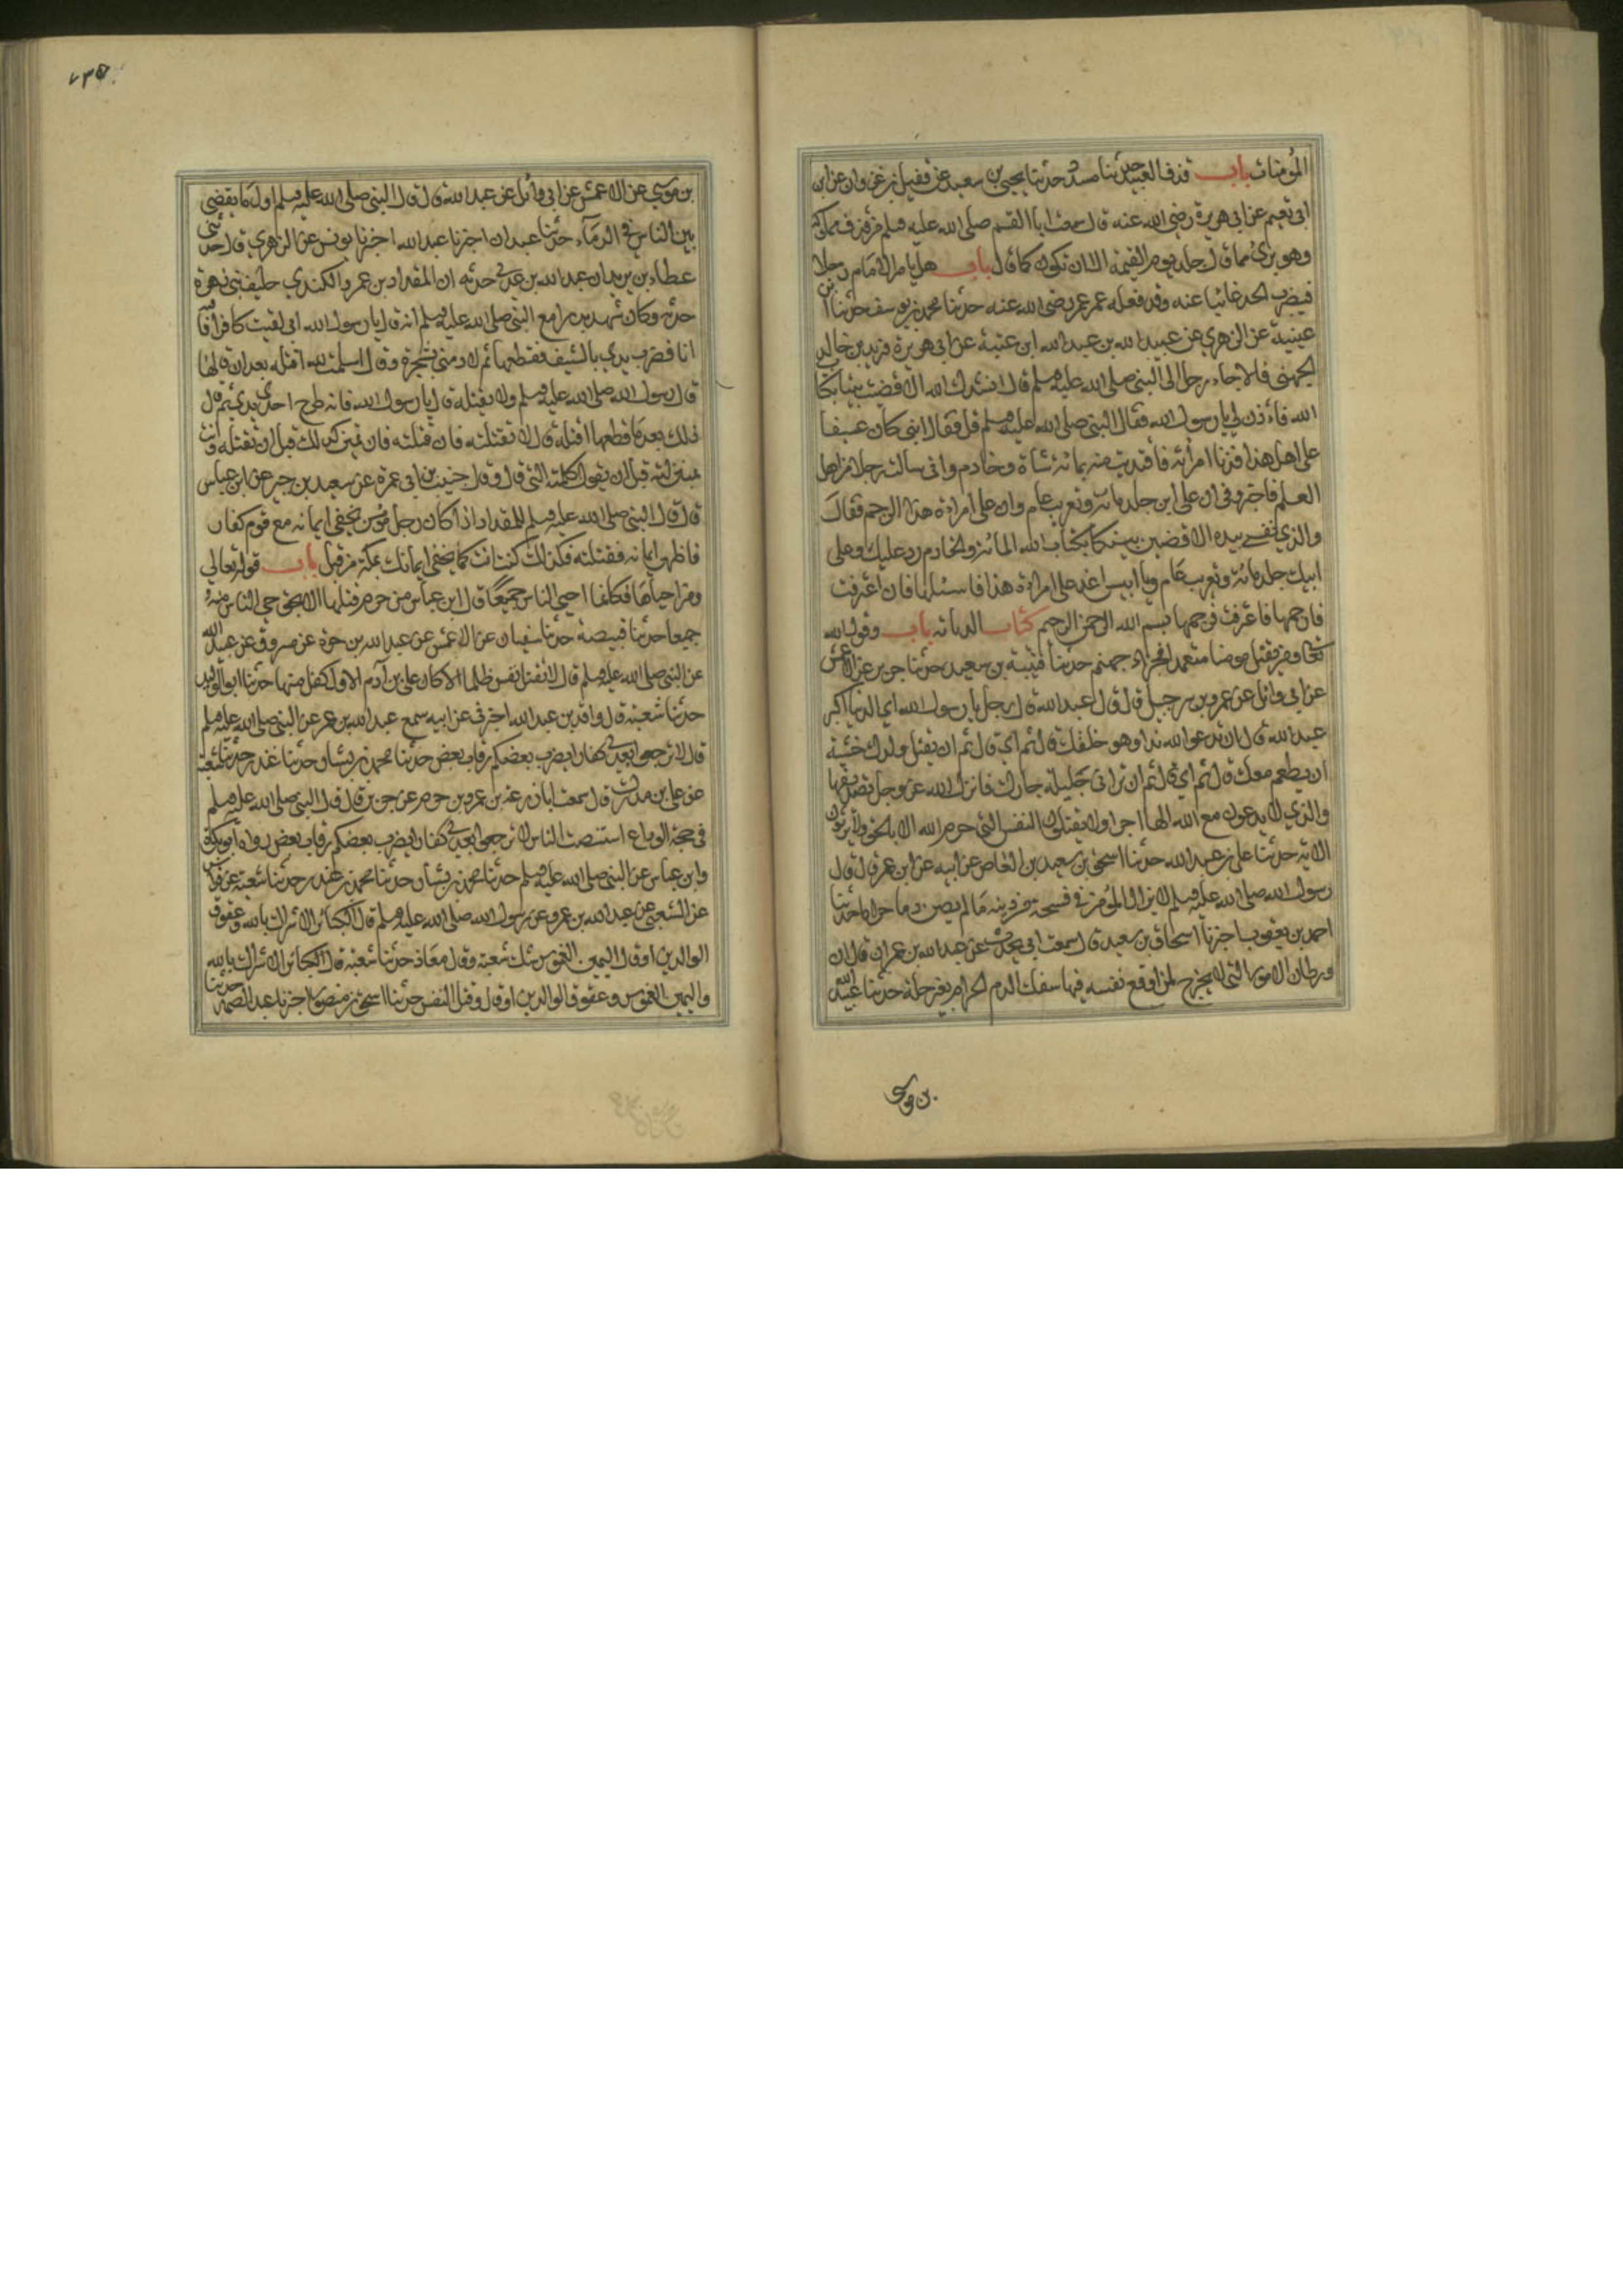 المؤمنات باب قذف العبيد حدثنا مسدد حدثنا يحيى بن سعيد عن فضيل بن غزوان عن ابن
ابي نعيم عن ابي هريرة رضي الله عنه قال سمعت ابا القسم صلى الله عليه وسلم من قذف مملوكه
وهو برئ مما قال جلد يوم القيمة الا ان تكون كما قال باب هل يامر الامام رجلا
فيضرب الحد غائبا عنه وقد فعله عمر عمر رضي الله عنه حدثنا محمد بن يوسف حدثنا ابن
عيينة عن الزهري عن عبيد الله بن عبد الله ابن عتبة عن ابي هريرة وزيد بن خالد
الجهني قالا جاء رجل الى النبي صلى الله عليه وسلم قال انشدك الله الا قضيت بيننا بكتاب
الله فاءذن لي يا رسول الله فقال النبي صلى الله عليه وسلم قل فقال ان ابني كان عسيفا
على اهل هذا فزنا امراته فافديت منه بمائة شاة وخادم واني سالت رجلا من اهل
العلم فاخبروني ان على ابن جلد مائة وتغريب عام وان على امراة هذا الرجم فقال
والذي نفسي بيده لاقضين بينكما بكتاب الله المائة والخادم رد عليك وعلى
ابنك جلد مائة وتغريب عام ويا انيس اغد على امراة هذا فاسئلها فان اعترفت
فارجمها فاعترفت فرجمها بسم الله الرحمن الرحيم كتاب الديات باب وقول الله
تعالى ومن يقتل مومنا متعمدا فجزاءه جهنم حدثنا قتيبة بن سعيد حدثنا جرير عن الاعمش
عن ابي وائل عن عمرو بن شرحبيل قال قال عبد الله قال رجل يا رسول الله اي الذنب اكبر
عبد الله قال ان تدعو الله ندا وهو خلقك قال ثم اي قال ثم ان تقتل ولدك خشية
ان يطعم معك قال ثم اي قال ثم ان تزاني حليلة جارك فانزل الله عز وجل تصديقها
والذين لا يدعون مع الله الها اخر ولا يقتلون النفس التي حرم الله الا بالحق ولا يزنون
الاية حدثنا علي بن عبد الله حدثنا اسحق بن سعيد بن العاص عن ابيه عن ابن عمر قال قال
رسول الله صلى الله عليه وسلم لا يزال المؤمن في فسحة من دينه ما لم يصب دما حراما حدثنا
احمد بن يعقوب اخبرنا اسحاق بن سعيد قال سمعت ابي يحدث عن عبد الله بن عمر ان قال ان
ورطات الامور التي لا مخرج لمن اوقع نفسه فيها سفك الدم الحرام بغير حله حدثنا عبيد الله
بن موسى
٧٣٥
بن موسى عن الاعمش عن ابي وائل عن عبد الله قال قال النبي صلى الله عليه وسلم اول ما يقضى
بين الناس في الدماء حدثنا عبدان اخبرنا عبد الله اخبرنا يونس عن الزهري قال حدثني
عطاء بن يزيد ان عبد الله بن عدي حدثه ان المقداد بن عمرو الكندي حليف بني زهرة
حدثه وكان شهد بدرا مع النبي صلى الله عليه وسلم انه قال يا رسول الله اني لقيت كافرا
انا فضرب يدي بالسيف فقطعها ثم لاذ مني بشجرة وقال اسلمت لله اقتله بعد ان قالها
قال رسول الله صلى الله عليه وسلم ولا يقتله قال يا رسول الله فانه طرح احدى يدي ثم قال
ذلك بعد ما قطعها اقتله قال لا تقتله فان قتلته فان بمنزلتك قبل ان تقتله وانت
بمنزلته قبل ان يقول كلمته التي قال وقال حبيب بن ابي عمرة عن سعيد بن جبير عن ابن عباس
قال قال النبي صلى الله عليه وسلم للمقداد اذا كان رجل مؤمن يخفي ايمانه مع قوم كفار
فاظهر ايمانه فقتلته فكذلك كنت انت كما يخفي ايمانك بمكة من قبل باب قوله تعالى
ومن احياها فكانما احيى الناس جميعا قال ابن عباس من حرم قتلها الا بحق حيي الناس منه
جميعا حدثنا قبيصة حدثنا سفيان عن الاعمش عن عبد الله بن مرة عن مسروق عن عبد الله
عن النبي صلى الله عليه وسلم قال لا تقتل نفس ظلما الا كان على بن آدم الاول كفل منها حدثنا ابو الوليد
حدثنا شعبة قال واقد بن عبد الله اخبرني عن ابيه سمع عبد الله بن عمر عن النبي صلى الله عليه وسلم
قال لا ترجعوا بعدي كفارا يضرب بعضكم رقاب بعض حدثنا محمد بن بشار حدثنا غندر حدثنا شعبة
عن علي بن مدرك قال سمعت ابا زرعة بن عمرو بن جرير عن جرير قال قال النبي صلى الله عليه وسلم
في حجة الوداع استنصت الناس لا ترجعوا بعدي كفارا يضرب بعضكم رقاب بعض رواه ابو بكرة
وابن عباس عن النبي صلى الله عليه وسلم حدثنا محمد بن بشار حدثنا محمد بن غندر حدثنا شعبة عن فراس
عن الشعبي عن عبد الله بن عمرو عن رسول الله صلى الله عليه وسلم قال الكبائر الاشراك بالله وعقوق
الوالدين او قال اليمين الغموس شك شعبة وقال معاذ حدثنا شعبة قال الكبائر الاشراك بالله
واليمين الغموس وعقوق الوالدين او قال وقتل النفس حدثنا اسحق بن منصور اخبرنا عبد الصمد حدثنا